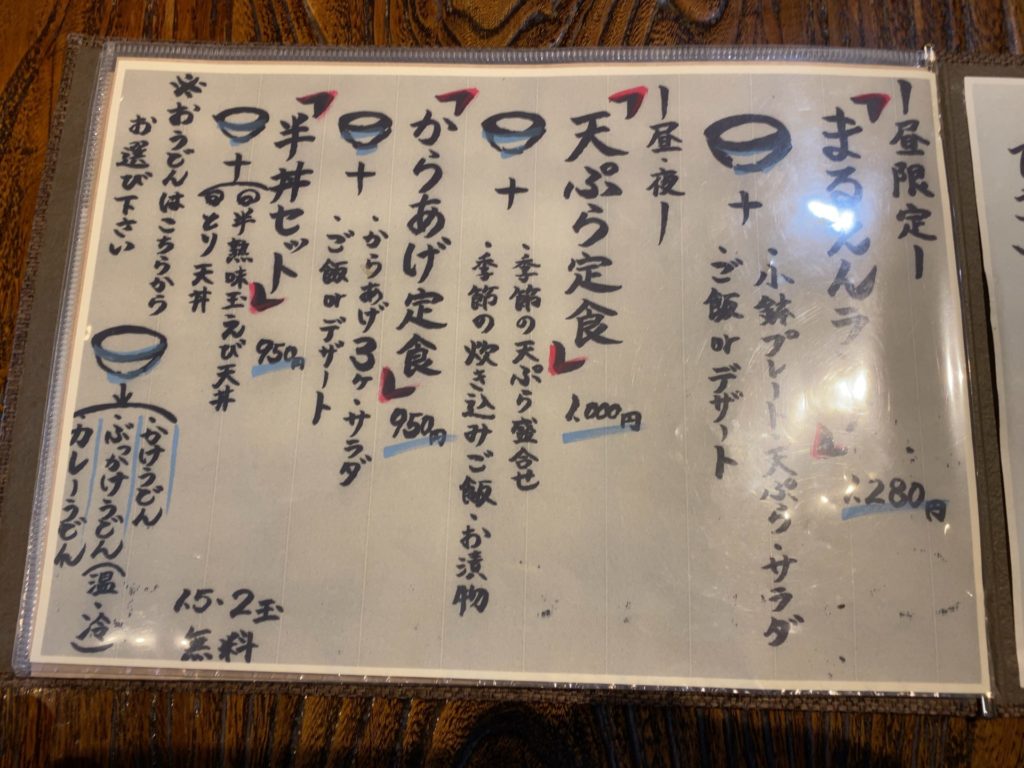 ー昼限定ー
「まる
1.280円
+
・小鉢プレート・天ぷら・サラダ
・ご飯orデザート
ー昼・夜ー
「天ぷら定食」
1.000円
+
・季節の天ぷら盛合せ
・季節の炊き込みご飯・お漬物
「からあげ定食」
950円
+
・からあげ3ヶ・サラダ
・ご飯orデザート
「半丼セット」
950円
+
半熟味玉・えび天丼
とり天丼
※おうどんはこちらから
お選び下さい
かけうどん
ぶっかけうどん(温・冷)
カレーうどん
1.5・2玉
無料